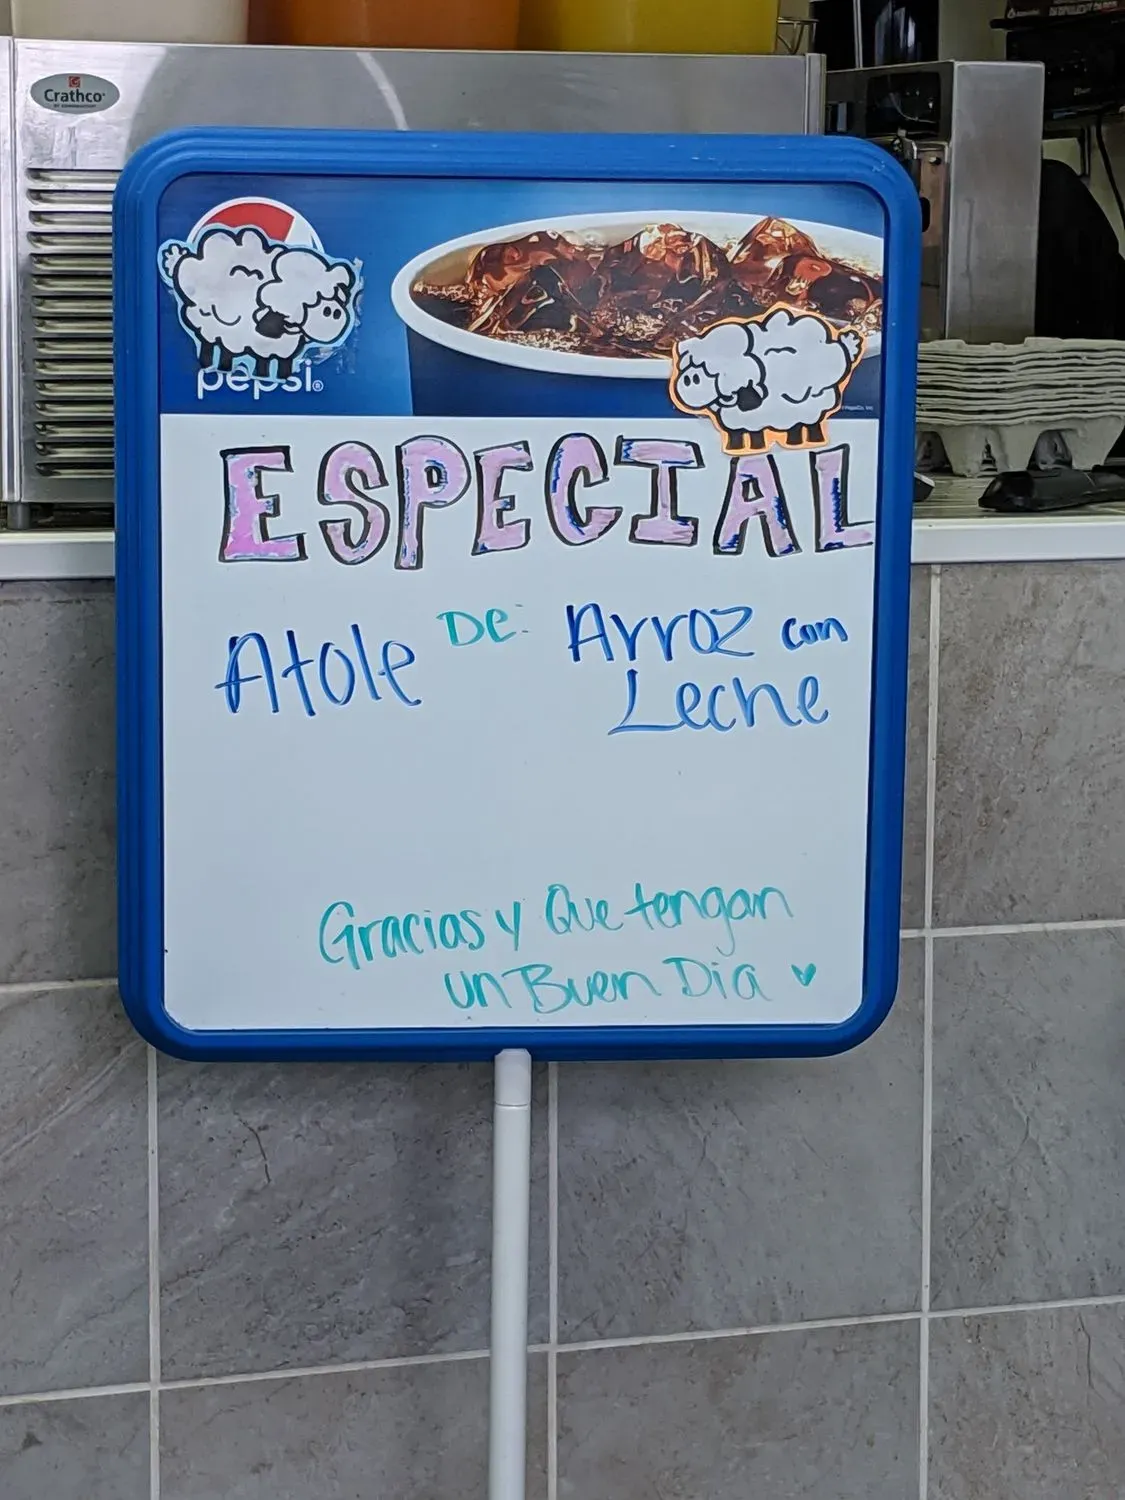 Crathco®
pepsi®
ESPECIAL
Atole DE: Arroz con
Leche
Gracias y Que tengan
un Buen Dia